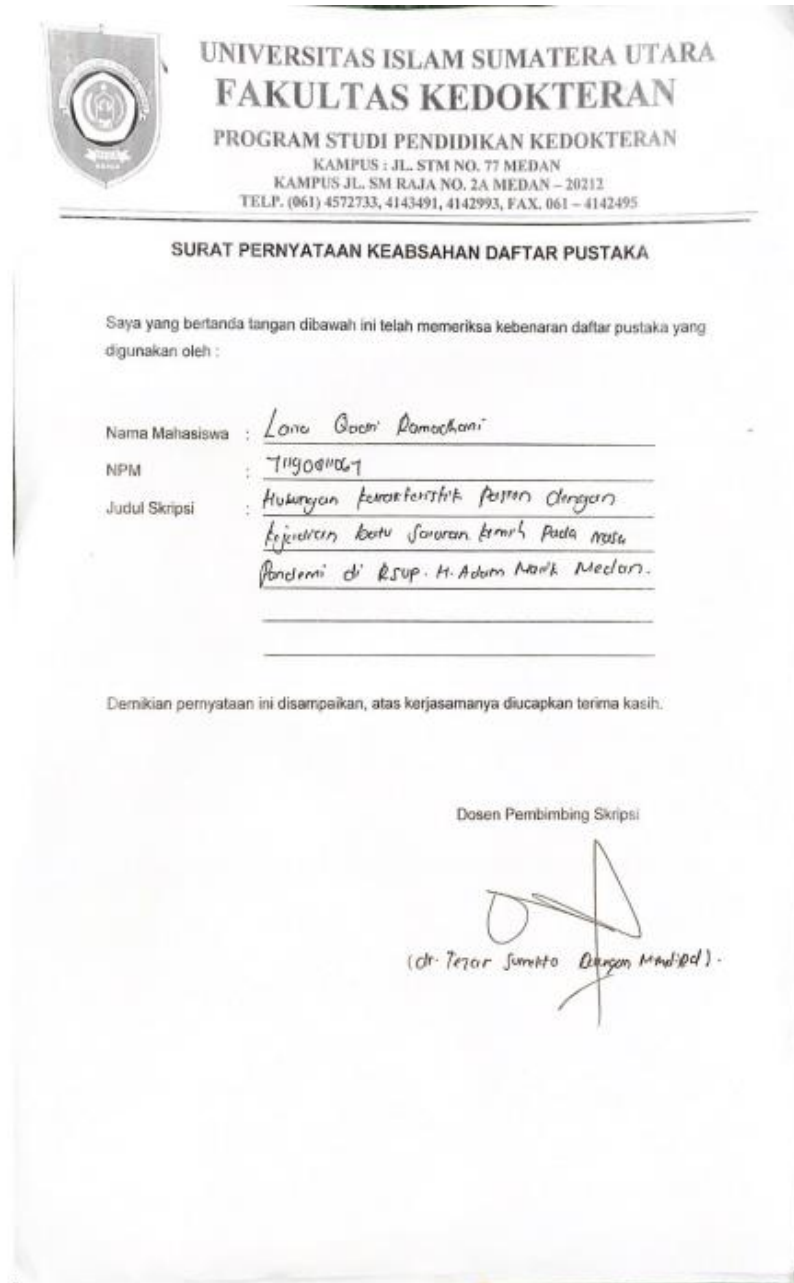 UNIVERSITAS ISLAM SUMATERA UTARA
FAKULTAS KEDOKTERAN
PROGRAM STUDI PENDIDIKAN KEDOKTERAN
KAMPUS : JL. STM NO. 77 MEDAN
KAMPUS JL. SM RAJA NO. 2A MEDAN – 20212
TELP. (061) 4572733, 4143491, 4142993, FAX. 061 – 4142495
SURAT PERNYATAAN KEABSAHAN DAFTAR PUSTAKA
Saya yang bertanda tangan dibawah ini telah memeriksa kebenaran daftar pustaka yang
digunakan oleh :
Nama Mahasiswa :
NPM :
Judul Skripsi : Hubungan karakteristik Pasien dengan
kejadian batu saluran kemih Pada masa
Pandemi di RSUP. H. Adam Malik Medan.
Demikian pernyataan ini disampaikan, atas kerjasamanya diucapkan terima kasih.
Dosen Pembimbing Skripsi
(dr.